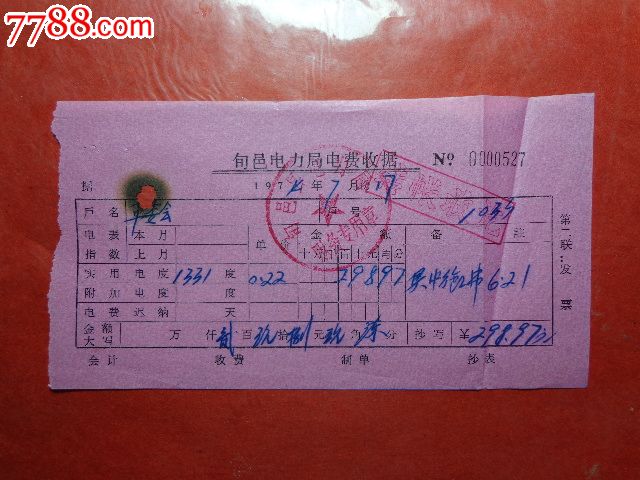 7788.com
旬邑电力局电费收据 № 0000527
据 1974年7月17
戶名 号 1037
电表 本月 单价 金额 备註
指数 上月 十万千百十元角分
实用电度 1331 度 0.22 29897 6.21
附加电度 度
电费迟纳 天
金额大写 万仟贰百玖拾捌元玖角柒分 抄写 ¥298.97
会计 收费 制单 抄表
第二联:发票
财务专用章